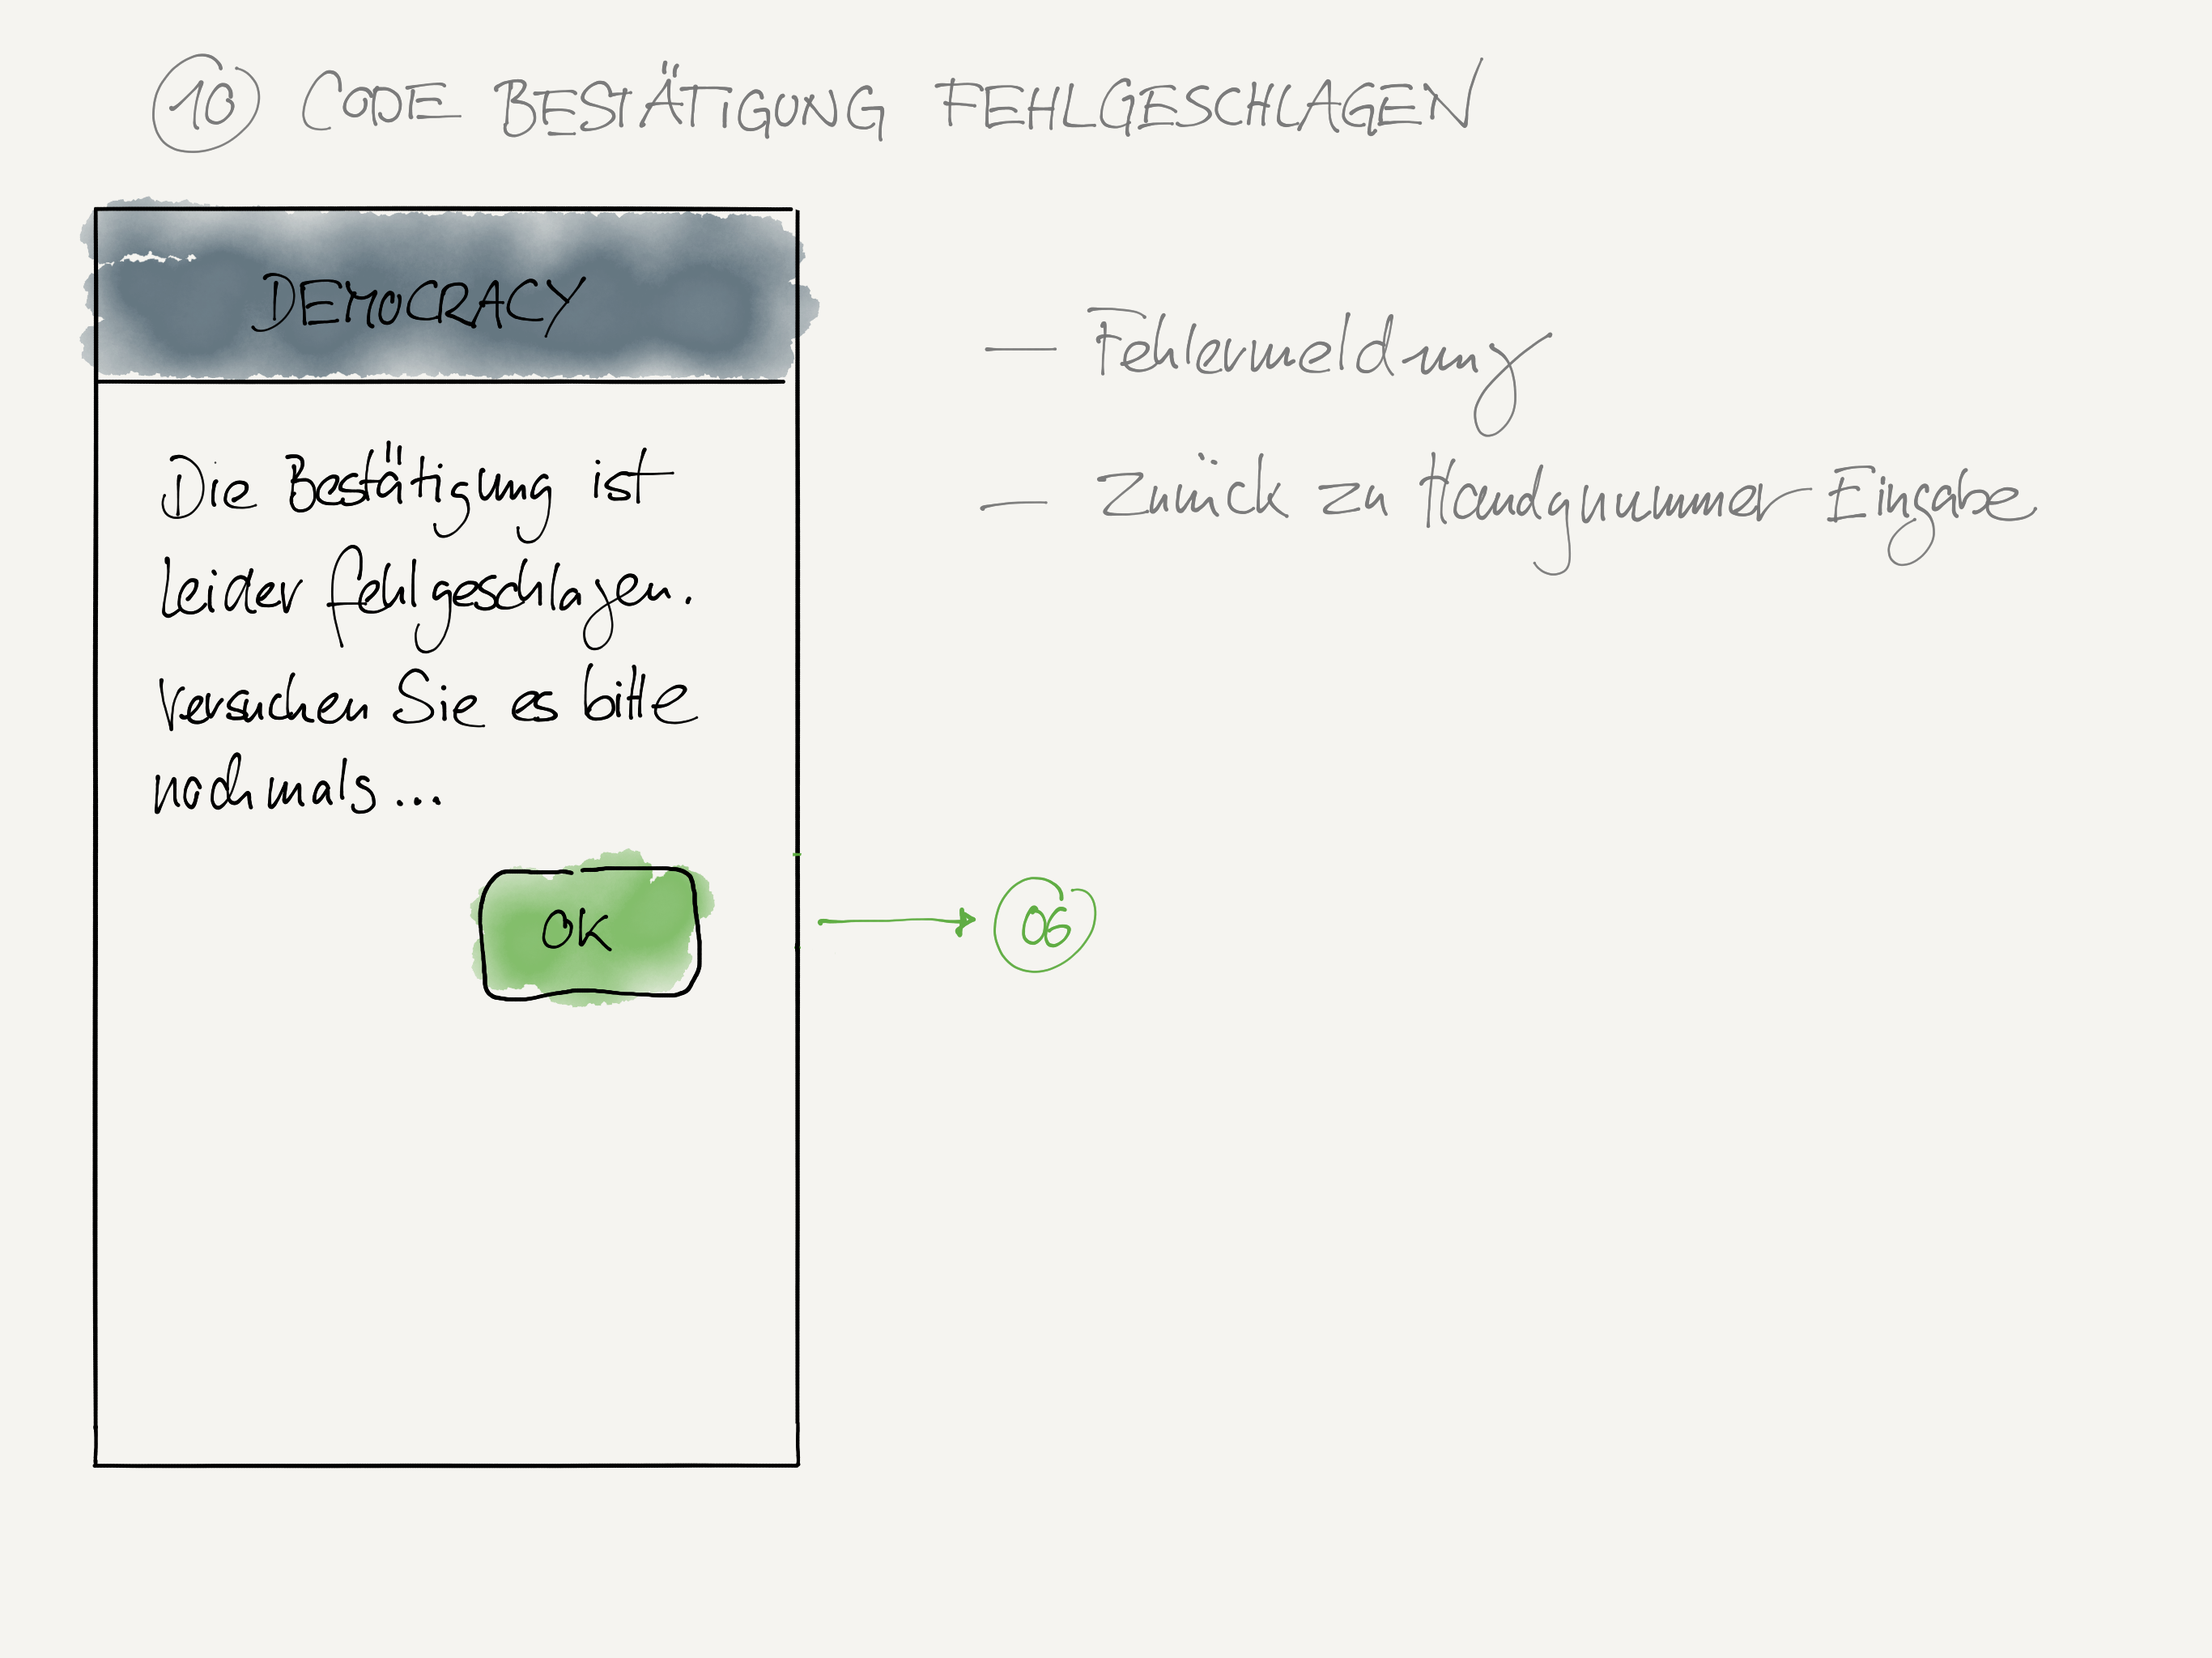 10 CODE BESTÄTIGUNG FEHLGESCHLAGEN
DEMOCRACY
Die Bestätigung ist
leider fehlgeschlagen.
Versuchen Sie es bitte
nochmals...
OK
— Fehlermeldung
— Zurück zu Handynummer Eingabe
06